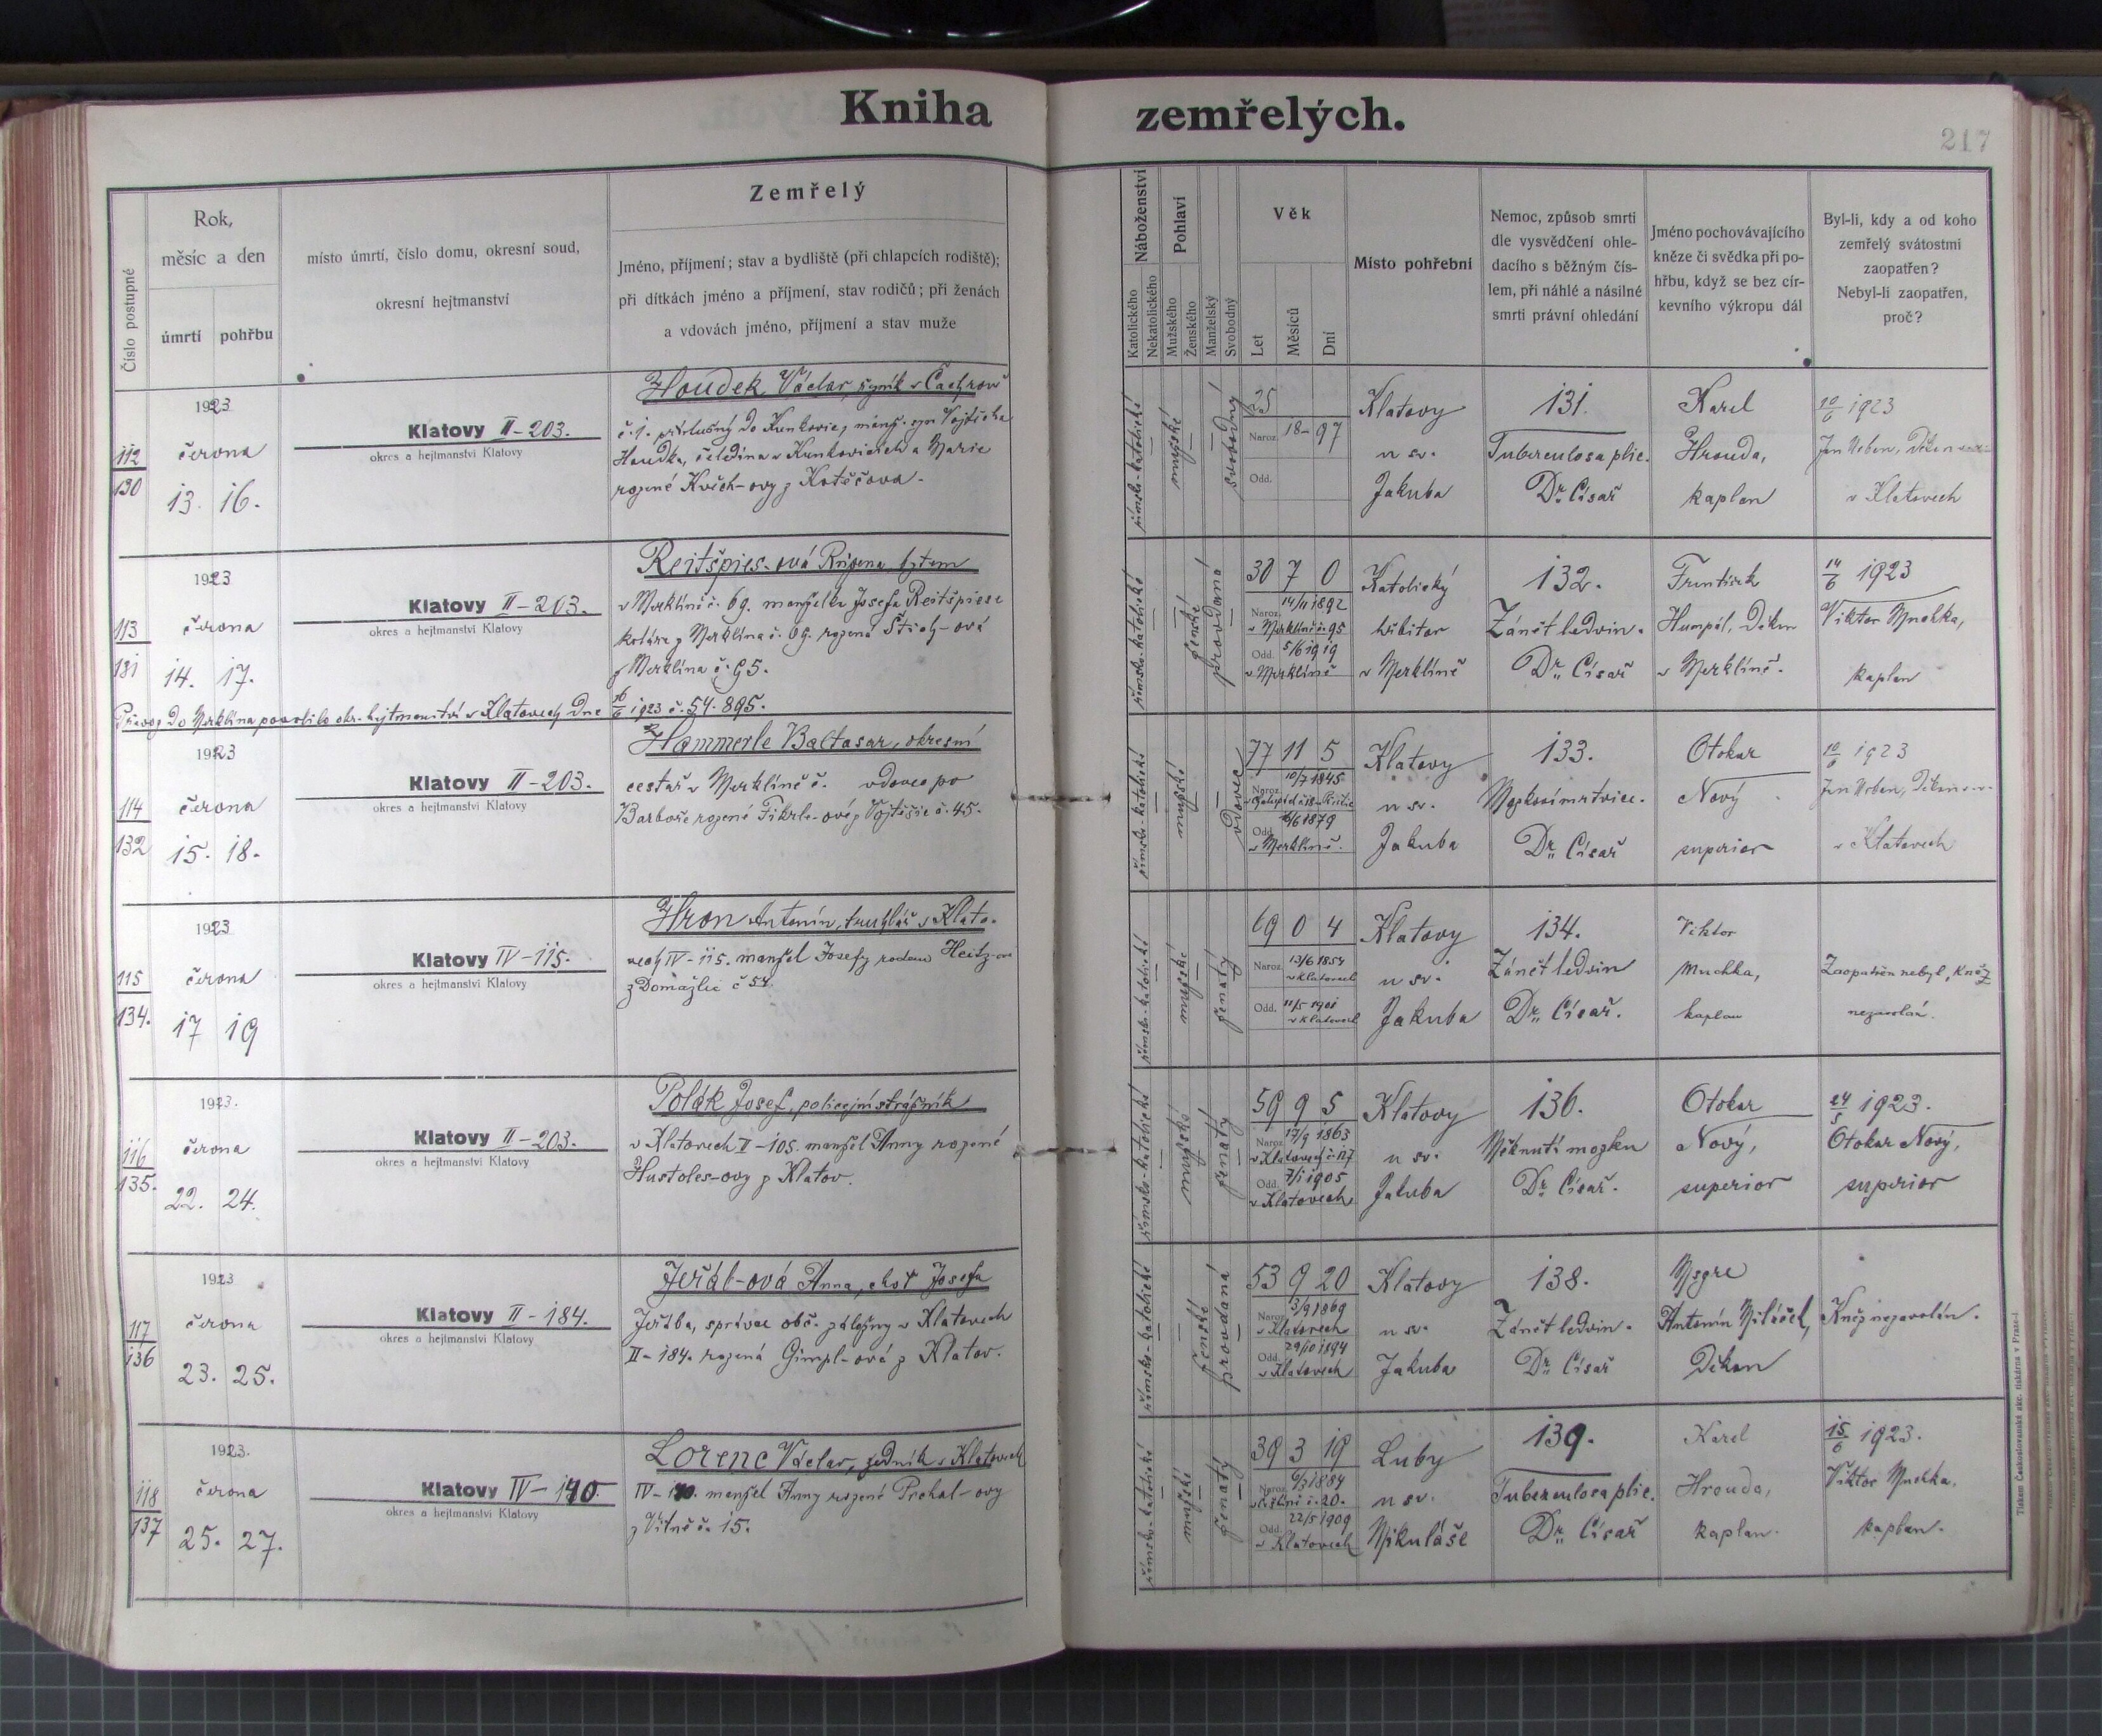 Kniha zemřelých.
217
Číslo postupné
Rok,
měsíc a den
úmrtí pohřbu
místo úmrtí, číslo domu, okresní soud,
okresní hejtmanství
Zemřelý
Jméno, příjmení; stav a bydliště (při chlapcích rodiště);
při dítkách jméno a příjmení, stav rodičů; při ženách
a vdovách jméno, příjmení a stav muže
Náboženství
Katolického
Nekatolického
Pohlaví
Mužského
Ženského
Manželský
Svobodný
Věk
Let
Měsíců
Dní
Místo pohřební
Nemoc, způsob smrti
dle vysvědčení ohle-
dacího s běžným čís-
lem, při náhlé a násilné
smrti právní ohledání
Jméno pochovávajícího
kněze či svědka při po-
hřbu, když se bez cír-
kevního výkropu dál
Byl-li, kdy a od koho
zemřelý svátostmi
zaopatřen?
Nebyl-li zaopatřen,
proč?
112
130
1923
června
13. 16.
Klatovy II-203.
okres a hejtmanství Klatovy
Houdek Václav, v Čachrově
č. 1. příslušný do Kunkovic, manž. syn Vojtěcha
Houdka, čeledína v Kunkovicích a Marie
rozené z Kotěčova.
římsko-katolické
mužské
svobodný
25
Naroz. 18-97
Odd.
Klatovy
u sv.
Jakuba
131.
Tuberculosa plic.
Dr. Císař
Karel
Hrouda,
kaplan
10/6 1923
Jan Urban, Děkan
v Klatovech
113
131
1923
června
14. 17.
Klatovy II-203.
okres a hejtmanství Klatovy
Reitšpies-ová Růžena
v Merklíně č. 69. manželka Josefa Reitšpiese
koláře z Merklína č. 69. rozená
z Merklína č. 95.
Převoz do Merklína povolilo okr. hejtmanství v Klatovech dne 16/6 1923 č. 54.895.
římsko-katolické
ženské
provdaná
30 7 0
Naroz. 14/11 1892
v Merklíně č. 95
Odd. 5/6 1919
v Merklíně
Katolický
hřbitov
v Merklíně
132.
Zánět ledvin.
Dr. Císař
František
Humpál, Děkan
v Merklíně.
14/6 1923
Viktor Muchka,
kaplan
114
132
1923
června
15. 18.
Klatovy II-203.
okres a hejtmanství Klatovy
Hammerle Baltasar, okresní
cestář v Merklíně č. vdovec po
Barboře rozené Fikrle-ové z Vojtěšic č. 45.
římsko-katolické
mužské
vdovec
77 11 5
Naroz. 10/7 1845
Odd. 16/6 1879
v Merklíně.
Klatovy
u sv.
Jakuba
133.
Mozková mrtvice.
Dr. Císař
Otokar
Nový
superior
10/6 1923
Jan Urban, Děkan
v Klatovech
115
134.
1923
června
17 19
Klatovy IV-115.
okres a hejtmanství Klatovy
Hron Antonín, truhlář v Klato-
vech IV-115. manžel Josefy rodem
z Domažlic č 54.
římsko-katolické
mužské
ženatý
69 0 4
Naroz. 13/6 1854
v Klatovech
Odd. 11/5 1901
v Klatovech
Klatovy
u sv.
Jakuba
134.
Zánět ledvin
Dr. Císař.
Viktor
Muchka,
kaplan
Zaopatřen nebyl, kněz
nezavolán.
116
135.
1923.
června
22. 24.
Klatovy II-203.
okres a hejtmanství Klatovy
Polák Josef, policejní strážník
v Klatovech II-105. manžel Anny rozené
Hustoles-ovy z Klatov.
římsko-katolické
mužské
ženatý
59 9 5
Naroz. 17/9 1863
v Klatovech č. 117
Odd. 7/1 1905
v Klatovech
Klatovy
u sv.
Jakuba
136.
Měknutí mozku
Dr. Císař.
Otokar
Nový,
superior
24/5 1923.
Otokar Nový,
superior
117
136
1923
června
23. 25.
Klatovy II-184.
okres a hejtmanství Klatovy
Jeřáb-ová Anna, choť Josefa
Jeřába, správce obč. záložny v Klatovech
II-184. rozená Gimpl-ová z Klatov.
římsko-katolické
ženské
provdaná
53 9 20
Naroz. 3/9 1869
v Klatovech
Odd. 29/10 1894
v Klatovech
Klatovy
u sv.
Jakuba
138.
Zánět ledvin.
Dr. Císař
Msgre
Antonín Miláček,
Děkan
Kněz nezavolán.
118
137
1923.
června
25. 27.
Klatovy IV-140
okres a hejtmanství Klatovy
Lorenc Václav, zedník v Klatovech
IV-140. manžel Anny rozené Prokal-ovy
z Vítně č. 15.
římsko-katolické
mužské
ženatý
39 3 19
Naroz. 6/3 1884
č. 20.
Odd. 22/5 1909
v Klatovech
Luby
u sv.
Mikuláše
139.
Tuberculosa plic.
Dr. Císař
Karel
Hrouda,
kaplan.
15/6 1923.
Viktor Muchka,
kaplan.
Tiskem Československé akc. tiskárny v Praze-I